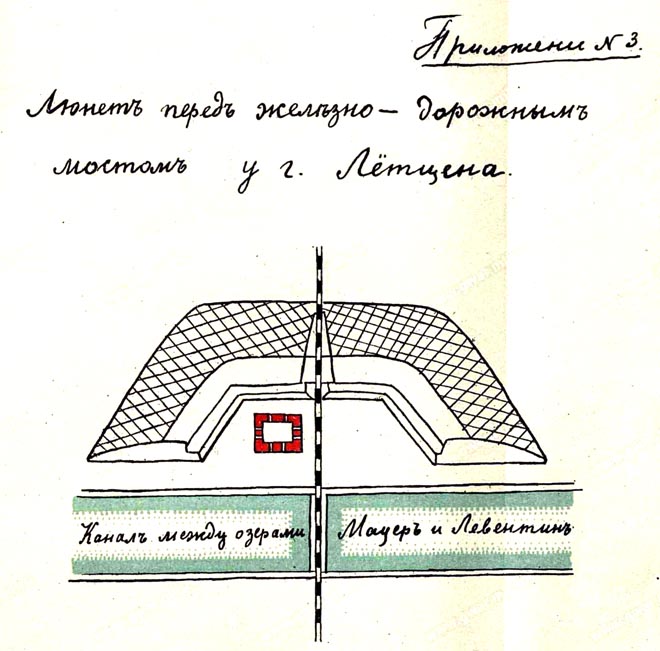 Приложени N 3.
Люнетъ передъ желѣзно — дорожнымъ
мостомъ у г. Лётцена.
Каналъ между озерами Мауеръ и Левентинъ